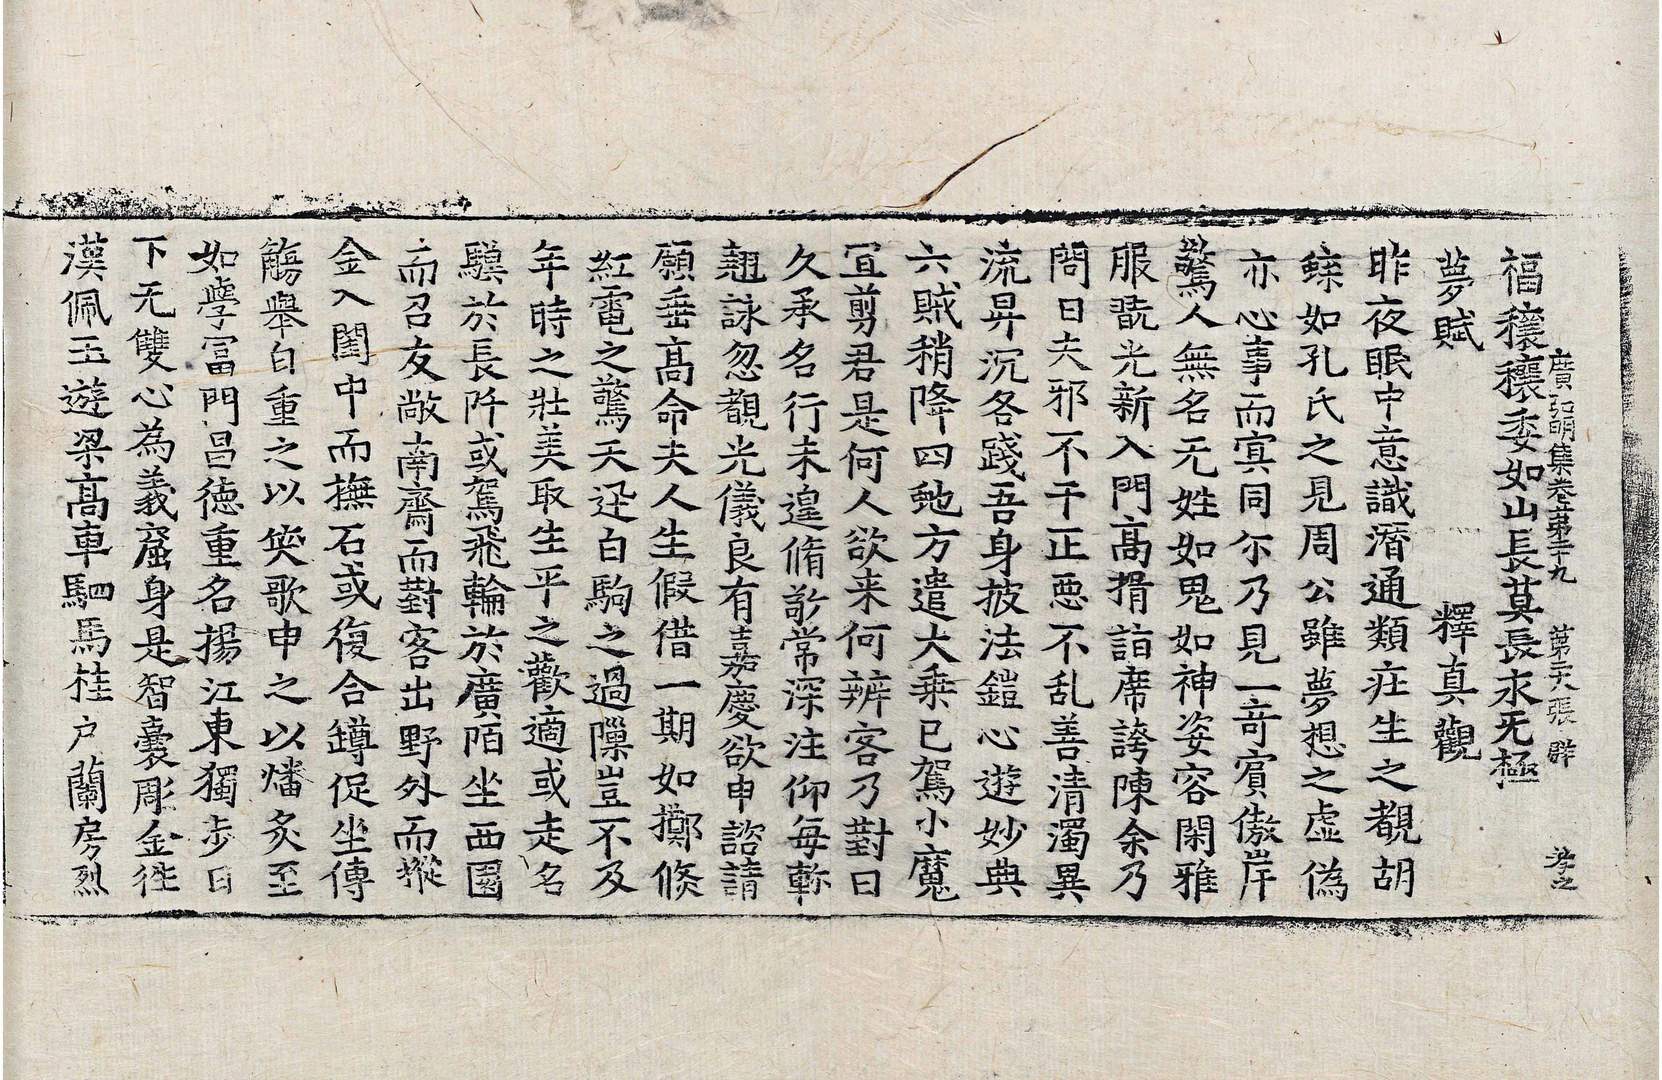 廣弘明集卷第二十九 第二六張 群
福穰穰委如山長其長求无極
夢賦 釋真觀
昨夜眠中意識潛通類庄生之覩胡
蝶如孔氏之見周公雖夢想之虛偽
亦心事而冥同尒乃見一奇賓傲岸
驚人無名无姓如鬼如神姿容閑雅
服翫光新入門高揖詣席誇陳余乃
問曰夫邪不干正惡不乱善清濁異
流昇沉各踐吾身披法鎧心遊妙典
六賊稍降四虵方遣大乘已駕小魔
冝剪君是何人欲来何辨客乃對曰
久承名行未遑脩敬常深注仰每軫
翹詠忽覩光儀良有嘉慶欲申諮請
願垂高命夫人生假借一期如擲倐
紅電之驚天迅白駒之過隟豈不及
年時之壯美取生平之歡適或走名
驥於長阡或駕飛輪於廣陌坐西園
而召友敞南齋而對客出野外而摐
金入閨中而撫石或復合罇促坐傳
觴舉白重之以筴歌申之以燔炙至
如學富門昌徳重名揚江東獨步日
下无雙心為義窟身是智囊彫金徃
漢佩玉遊梁高車駟馬桂户蘭房烈